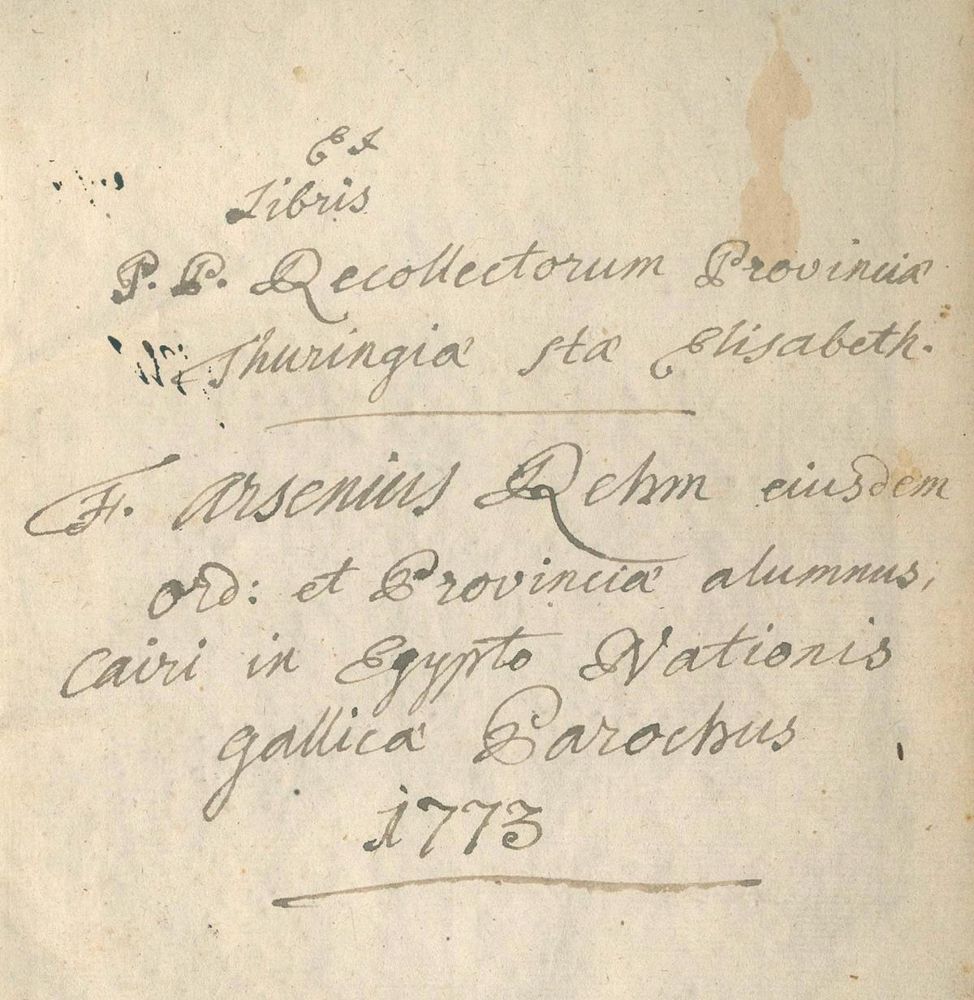 Ex
Libris
P. P. Recollectorum Provinciæ
Thuringiæ stæ Elisabeth.
F. Arsenius Rehm eiusdem
ord: et Provinciæ alumnus,
Cairi in Egypto Nationis
gallicæ Parochus
1773